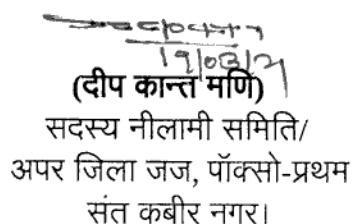 19/03/21
(दीप कान्त मणि)
सदस्य नीलामी समिति/
अपर जिला जज, पॉक्सो-प्रथम
संत कबीर नगर।